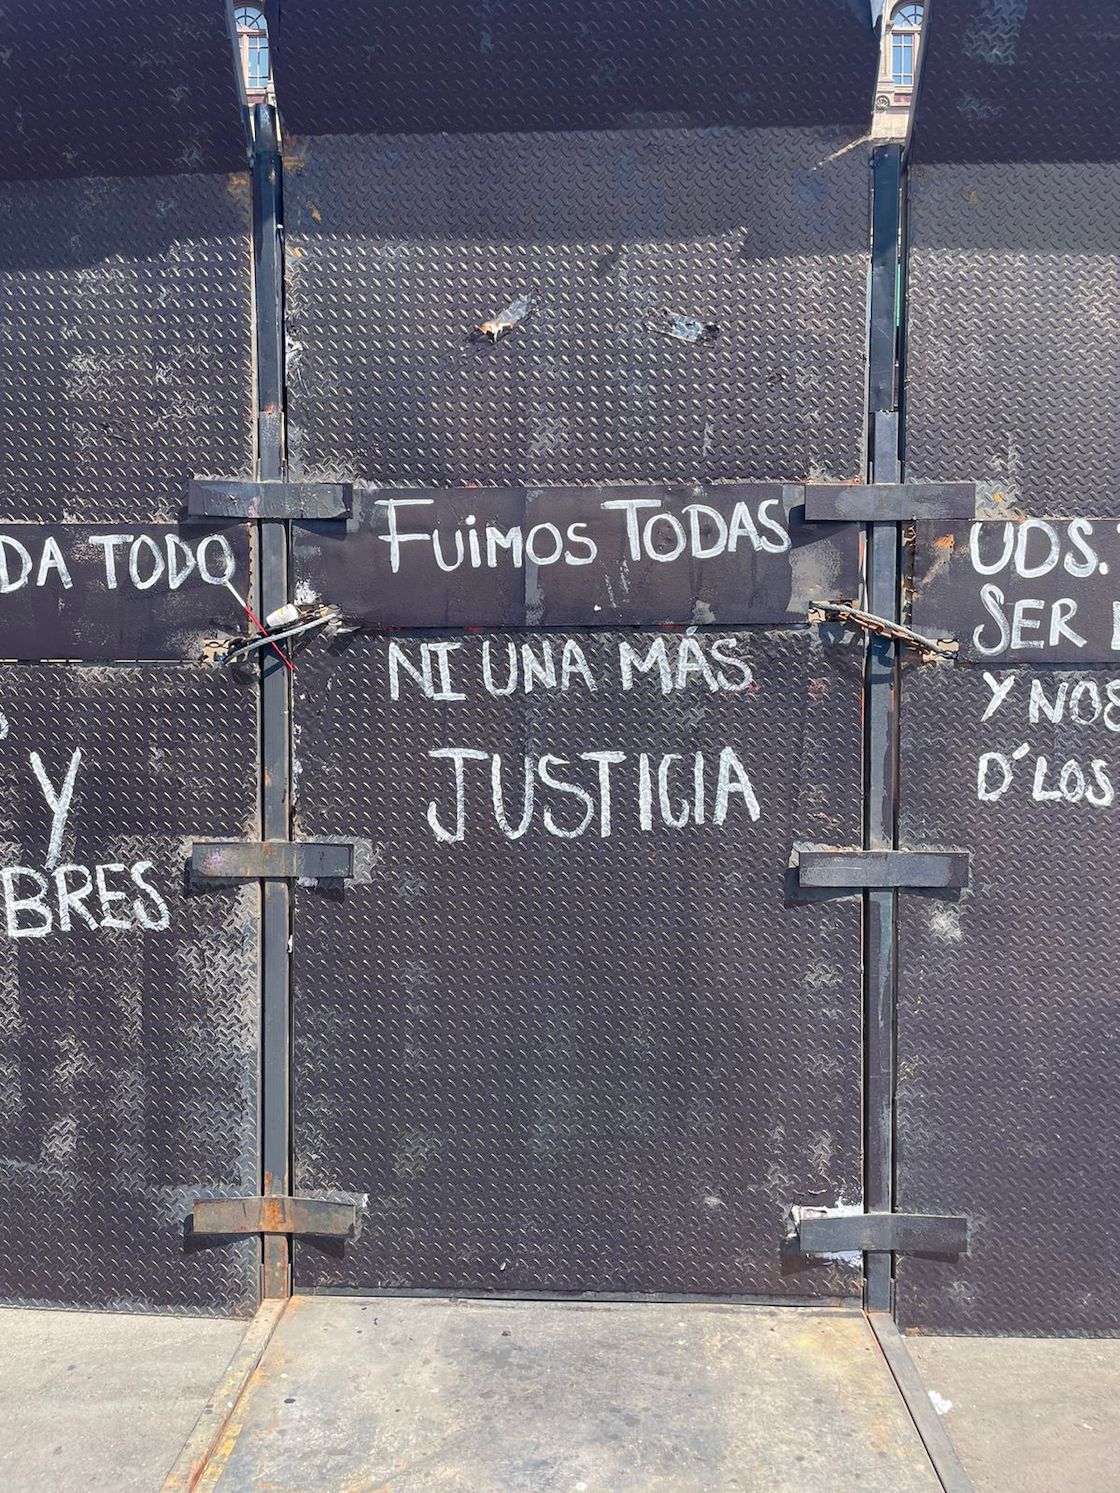 DA TODO
Y
BRES
FUiMOS TODAS
NI UNA MÁS
JUSTICIA
UDS.
SER
Y NOS
D´LOS